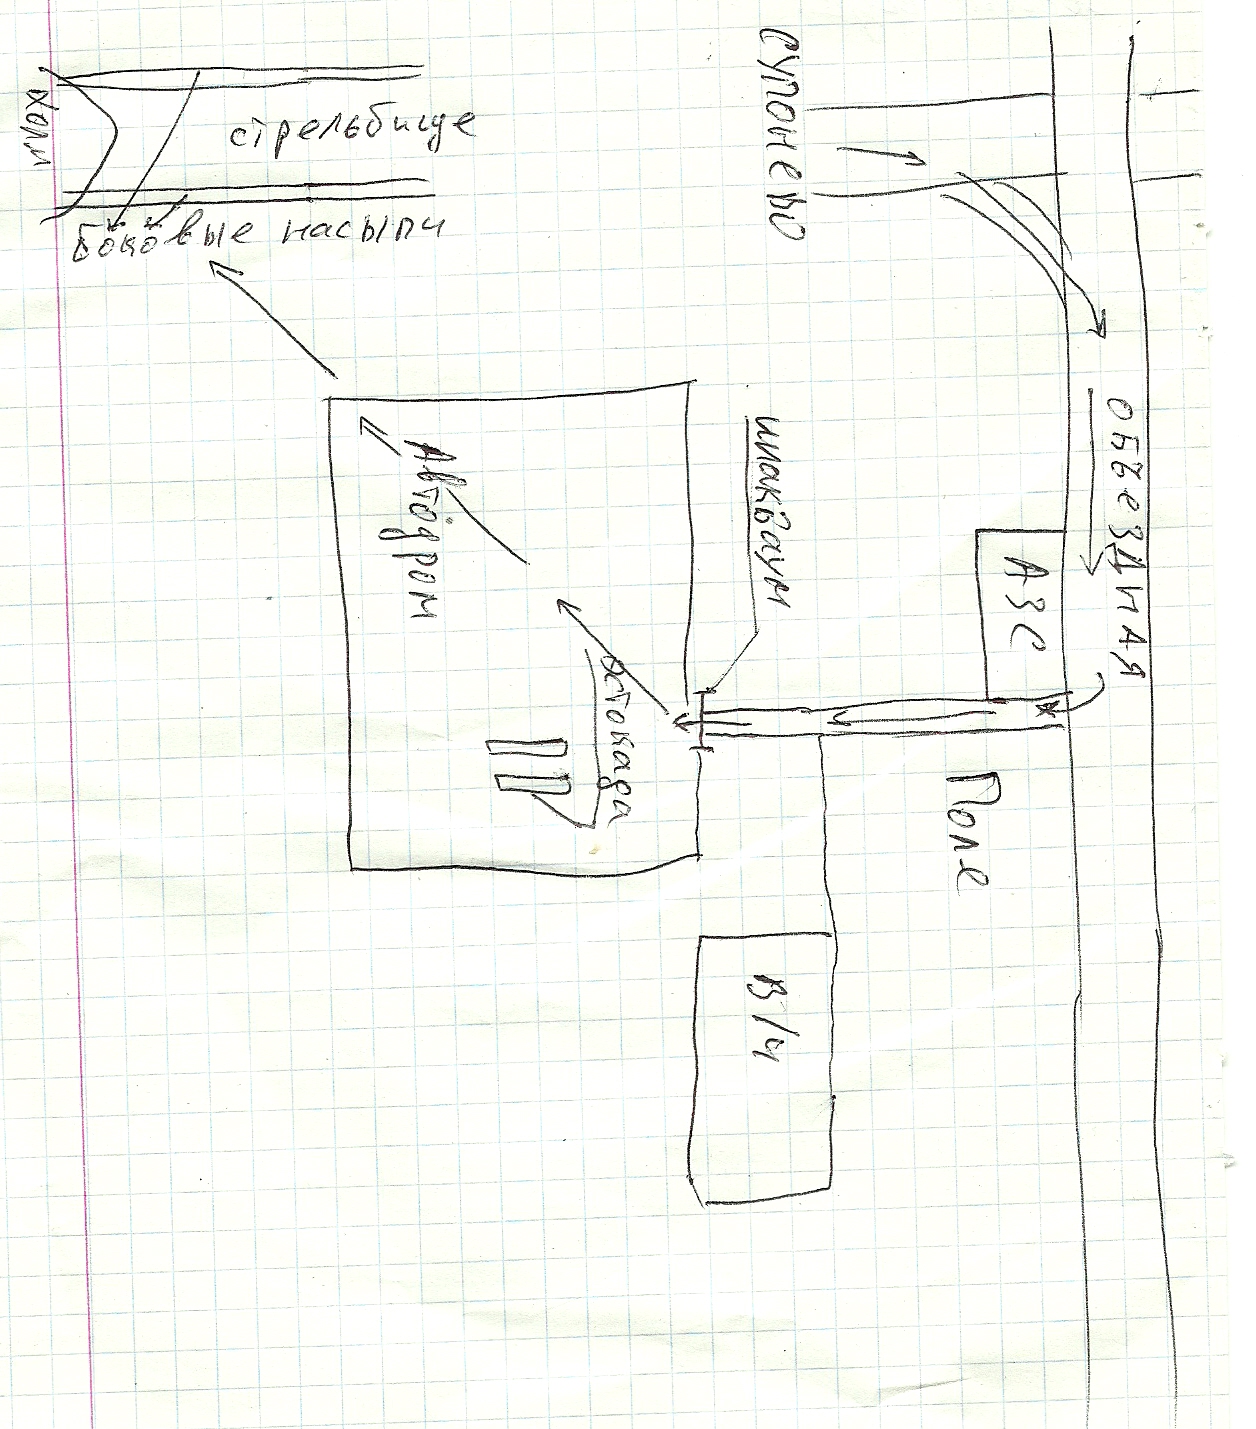 стрельбище
Холм
Боковые насыпи
Супонево
объездная
АЗС
шлакбаум
Автодром
эстокада
Поле
В/ч